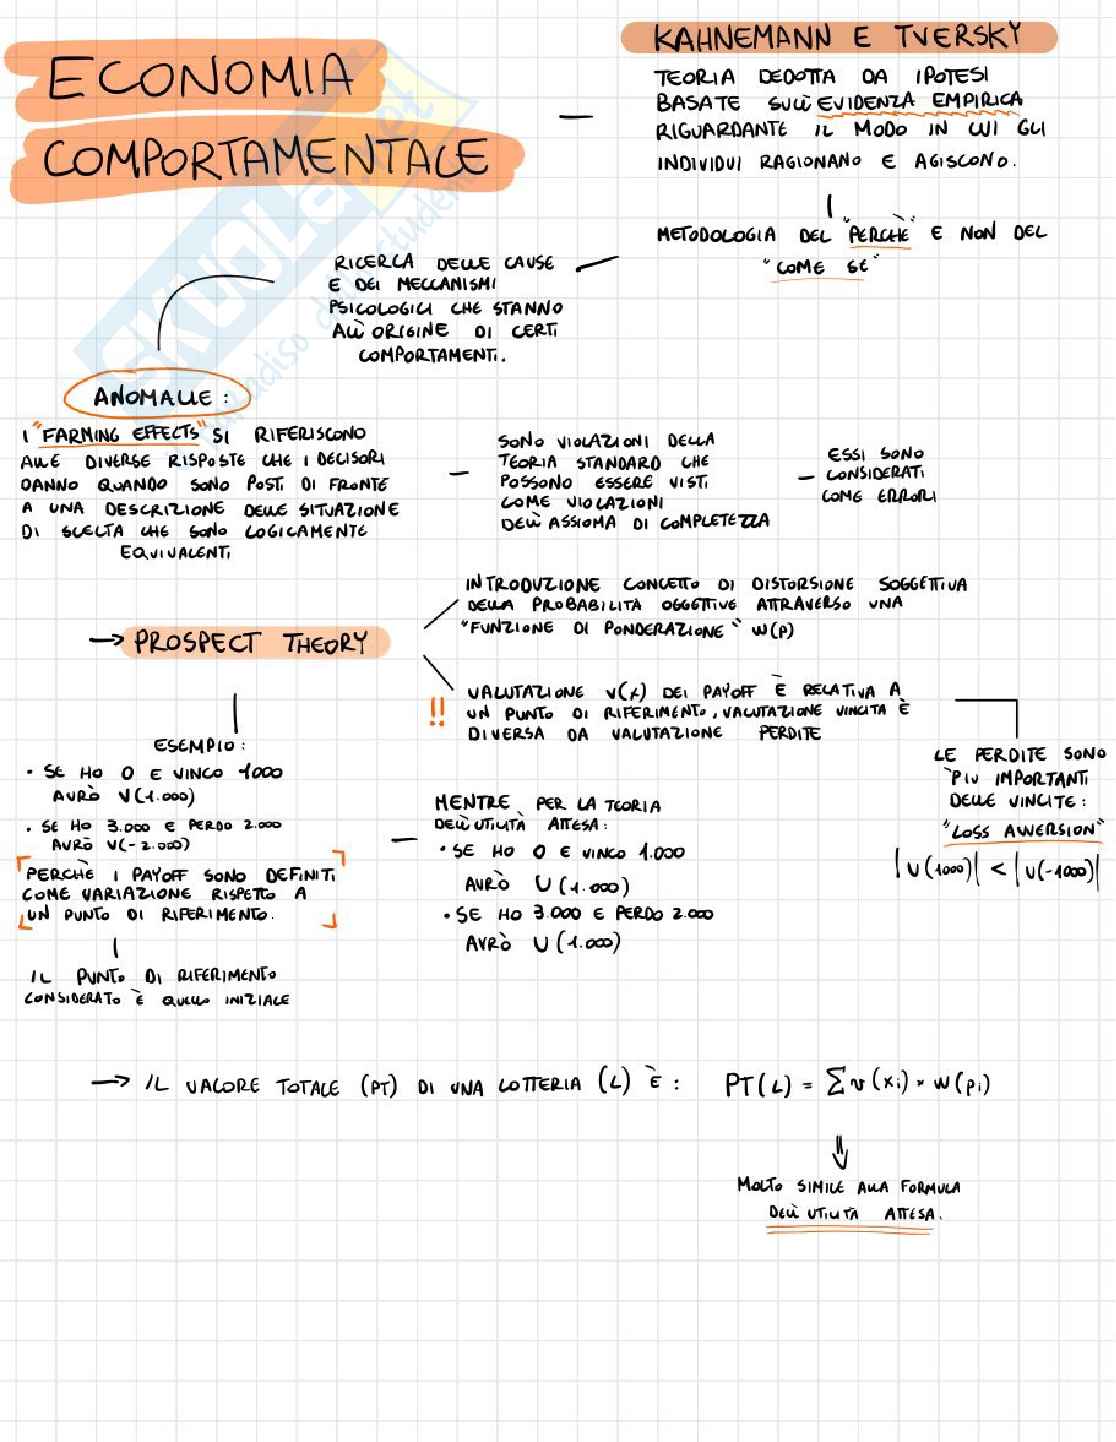 ECONOMIA
COMPORTAMENTALE
KAHNEMANN E TVERSKY
TEORIA DEDOTTA DA IPOTESI
BASATE SULL'EVIDENZA EMPIRICA
RIGUARDANTE IL MODO IN CUI GLI
INDIVIDUI RAGIONANO E AGISCONO.
METODOLOGIA DEL "PERCHÈ" E NON DEL
"COME SE"
RICERCA DELLE CAUSE
E DEI MECCANISMI
PSICOLOGICI CHE STANNO
ALL'ORIGINE DI CERTI
COMPORTAMENTI.
ANOMALIE:
I "FARMING EFFECTS" SI RIFERISCONO
ALLE DIVERSE RISPOSTE CHE I DECISORI
DANNO QUANDO SONO POSTI DI FRONTE
A UNA DESCRIZIONE DELLE SITUAZIONE
DI SCELTA CHE SONO LOGICAMENTE
EQUIVALENTI
SONO VIOLAZIONI DELLA
TEORIA STANDARD CHE
POSSONO ESSERE VISTI
COME VIOLAZIONI
DELL'ASSIOMA DI COMPLETEZZA
ESSI SONO
CONSIDERATI
COME ERRORI
→ PROSPECT THEORY
INTRODUZIONE CONCETTO DI DISTORSIONE SOGGETTIVA
DELLA PROBABILITÀ OGGETTIVE ATTRAVERSO UNA
"FUNZIONE DI PONDERAZIONE" W(P)
!! VALUTAZIONE V(x) DEI PAYOFF È RELATIVA A
UN PUNTO DI RIFERIMENTO, VALUTAZIONE VINCITA È
DIVERSA DA VALUTAZIONE PERDITE
LE PERDITE SONO
PIÙ IMPORTANTI
DELLE VINCITE:
"LOSS AVVERSION"
|V(1000)| < |V(-1000)|
ESEMPIO:
• SE HO 0 E VINCO 1000
AVRÒ V(1.000)
• SE HO 3.000 E PERDO 2.000
AVRÒ V(-2.000)
PERCHÈ I PAYOFF SONO DEFINITI
COME VARIAZIONE RISPETTO A
UN PUNTO DI RIFERIMENTO.
IL PUNTO DI RIFERIMENTO
CONSIDERATO È QUELLO INIZIALE
MENTRE PER LA TEORIA
DELL'UTILITÀ ATTESA:
• SE HO 0 E VINCO 1.000
AVRÒ U(1.000)
• SE HO 3.000 E PERDO 2.000
AVRÒ U(1.000)
→ IL VALORE TOTALE (PT) DI UNA LOTTERIA (L) È: PT(L) = ∑ v(xi) * w(pi)
⇓
MOLTO SIMILE ALLA FORMULA
DELL'UTILITÀ ATTESA.